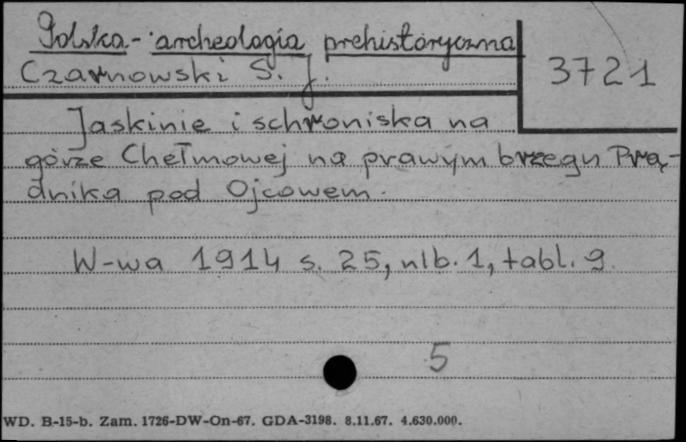 Polska - archeologia prehistoryczna
3721
Czarnowski S. J.
Jaskinie i schroniska na
górze Chełmowej na prawym brzegu Prą-
dnika pod Ojcowem.
W-wa 1914 s. 25, nlb. 1, tabl. 9.
5
WD. B-15-b. Zam. 1726-DW-On-67. GDA-3198. 8.11.67. 4.630.000.